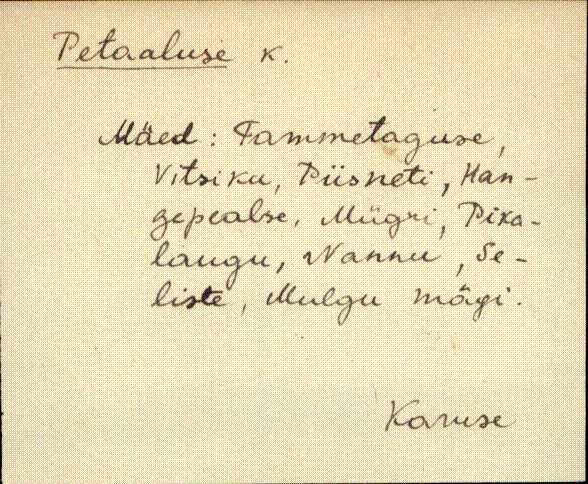 Petaaluse k.
Mäed: Tammetaguse,
Vitsiku, Piisneti, Han-
gepealse, Mügri, Pika-
laugu, Nannu, Se-
liste, Mulgu mägi.
Karuse